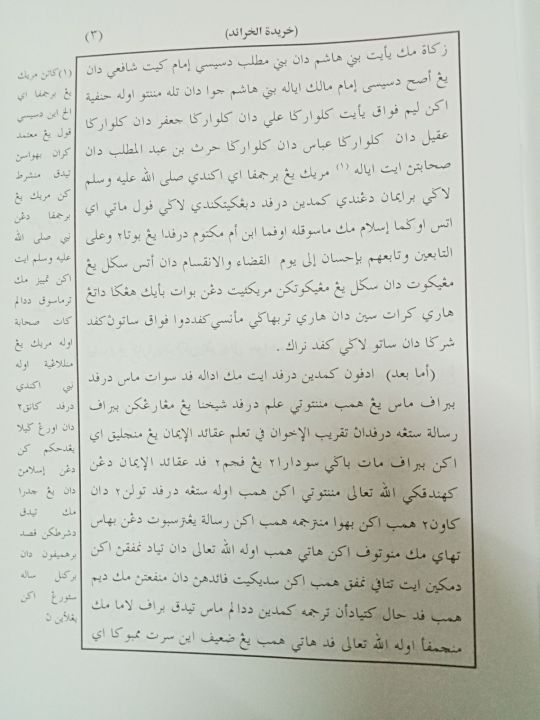 (خريدة الخرائد)
(٣)
زكاة مك يأيت بني هاشم دان بني مطلب دسيسي إمام كيت شافعي دان
يڠ أصح دسيسي إمام مالك اياله بني هاشم جوا دان تله مننتو اوله حنفية
اكن ليم فواق يأيت كلواركا علي دان كلواركا جعفر دان كلواركا
عقيل دان كلواركا عباس دان كلواركا حرث بن عبد المطلب دان
صحابتن ايت اياله (١) مريك يڠ برجمفا اي اكندي صلى الله عليه وسلم
لاكي برايمان دڠندي كمدين درفد دبڠكيتكندي لاكي فول ماتي اي
اتس اوكما إسلام مك ماسوقله اوفما ابن أم مكتوم درفدا يڠ بوتا٢ وعلى
التابعين وتابعهم بإحسان إلى يوم القضاء والانقسام دان أتس سكل يڠ
مڠيكوت دان سكل يڠ مڠيكوتكن مريكئيت دڠن بوات بأيك هڠكا داتڠ
هاري كرات سين دان هاري تربهاكي مأنسي كفددوا فواق ساتون كفد
شركا دان ساتو لاكي كفد نراك .
(أما بعد) ادفون كمدين درفد ايت مك اداله فد سوات ماس درفد
ببراف ماس يڠ همب مننتوتي علم درفد شيخنا يڠ مڠارڠكن ببراف
رسالة ستڠه درفدان تقريب الإخوان في تعلم عقائد الإيمان يڠ منجليق اي
اكن ببراف مات باكي سودارا٢ يڠ فجم٢ فد عقائد الإيمان دڠن
كهندقكي الله تعالى مننتوتي اكن همب اوله ستڠه درفد تولن٢ دان
كاون٢ همب اكن بهوا منترجمه همب اكن رسالة يڠترسبوت دڠن بهاس
تهاي مك منوتوف اكن هاتي همب اوله الله تعالى دان تياد نمفقن اكن
دمكين ايت تتافي نمفق همب اكن سديكيت فائدهن دان منفعتن مك ديم
همب فد حال كتيادأن ترجمه كمدين ددالم ماس تيدق براف لاما مك
منجمفأ اوله الله تعالى فد هاتي همب يڠ ضعيف اين سرت ممبوكا اي
(١) كاتن مريك
يڠ برجمفا اي
الخ اين دسيسي
قول يڠ معتمد
كران بهواسن
تيدق منشرط
كن مريك يڠ
برجمفا دڠن
نبي صلى الله
عليه وسلم ايت
اكن تمييز مك
ترماسوق ددالم
كات صحابة
اوله مريك يڠ
منللاڠية اوله
نبي اكندي
درفد كانق٢
دان اورڠ كيلا
يڠدحكم كن
دڠن إسلامن
دان يڠ جدرا
مك تيدق
دشرطكن قصد
برهميفون دان
بركنل ساله
سئورڠ اكن